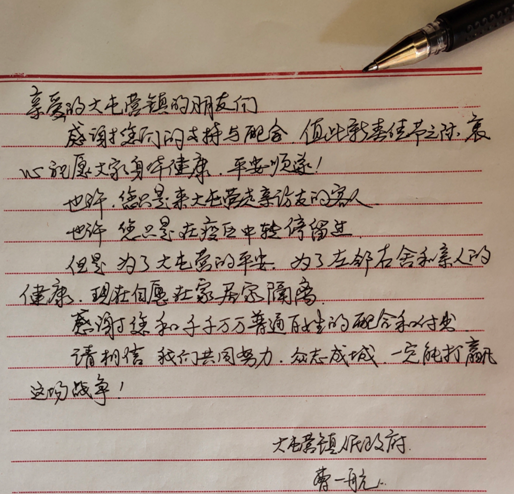 亲爱的大屯营镇的朋友们
感谢您们的支持与配合 值此新春佳节之际,衷
心祝愿大家身体健康、平安顺遂!
也许,您只是来大屯营走亲访友的客人
也许 您只是在疫区中转停留过
但是 为了大屯营的平安、为了左邻右舍和亲人的
健康、现在自愿在家居家隔离
感谢您和千千万万普通百姓的配合和付出
请相信 我们共同努力、众志成城、一定能打赢
这场战争!
大屯营镇人民政府
曹一航